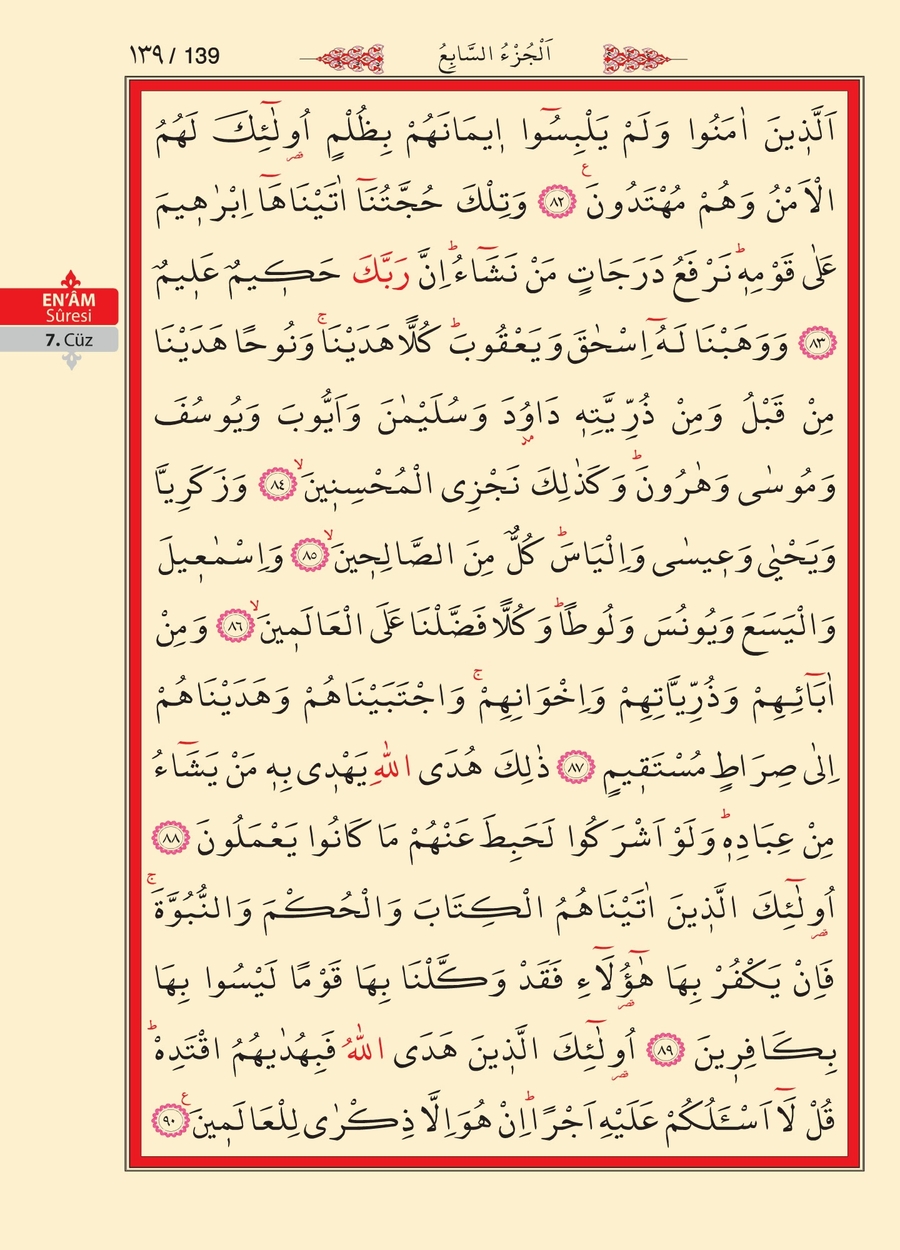 ١٣٩ / 139
اَلْجُزْءُ السَّابِعُ
اَلَّذٖينَ اٰمَنُوا وَلَمْ يَلْبِسُٓوا اٖيمَانَهُمْ بِظُلْمٍ اُو۬لٰٓئِكَ لَهُمُ
الْاَمْنُ وَهُمْ مُهْتَدُونَࣖ ﴿٨٢﴾ وَتِلْكَ حُجَّتُنَٓا اٰتَيْنَاهَٓا اِبْرٰهٖيمَ
عَلٰى قَوْمِهٖؕ نَرْفَعُ دَرَجَاتٍ مَنْ نَشَٓاءُؕ اِنَّ رَبَّكَ حَكٖيمٌ عَلٖيمٌ
﴿٨٣﴾ وَوَهَبْنَا لَهُٓ اِسْحٰقَ وَيَعْقُوبَؕ كُلًّا هَدَيْنَاۚ وَنُوحًا هَدَيْنَا
مِنْ قَبْلُ وَمِنْ ذُرِّيَّتِهٖ دَاوُ۫دَ وَسُلَيْمٰنَ وَاَيُّوبَ وَيُوسُفَ
وَمُوسٰى وَهٰرُونَؕ وَكَذٰلِكَ نَجْزِى الْمُحْسِنٖينَۙ ﴿٨٤﴾ وَزَكَرِيَّا
وَيَحْيٰى وَعٖيسٰى وَاِلْيَاسَؕ كُلٌّ مِنَ الصَّالِحٖينَۙ ﴿٨٥﴾ وَاِسْمٰعٖيلَ
وَالْيَسَعَ وَيُونُسَ وَلُوطًاؕ وَكُلًّا فَضَّلْنَا عَلَى الْعَالَمٖينَۙ ﴿٨٦﴾ وَمِنْ
اٰبَٓائِهِمْ وَذُرِّيَّاتِهِمْ وَاِخْوَانِهِمْۚ وَاجْتَبَيْنَاهُمْ وَهَدَيْنَاهُمْ
اِلٰى صِرَاطٍ مُسْتَقٖيمٍ ﴿٨٧﴾ ذٰلِكَ هُدَى اللّٰهِ يَهْدٖى بِهٖ مَنْ يَشَٓاءُ
مِنْ عِبَادِهٖؕ وَلَوْ اَشْرَكُوا لَحَبِطَ عَنْهُمْ مَا كَانُوا يَعْمَلُونَ ﴿٨٨﴾
اُو۬لٰٓئِكَ الَّذٖينَ اٰتَيْنَاهُمُ الْكِتَابَ وَالْحُكْمَ وَالنُّبُوَّةَۚ
فَاِنْ يَكْفُرْ بِهَا هٰٓؤُ۬لَٓاءِ فَقَدْ وَكَّلْنَا بِهَا قَوْمًا لَيْسُوا بِهَا
بِكَافِرٖينَ ﴿٨٩﴾ اُو۬لٰٓئِكَ الَّذٖينَ هَدَى اللّٰهُ فَبِهُدٰيهُمُ اقْتَدِهْؕ
قُلْ لَٓا اَسْـَٔلُكُمْ عَلَيْهِ اَجْرًاؕ اِنْ هُوَ اِلَّا ذِكْرٰى لِلْعَالَمٖينَࣖ ﴿٩٠﴾
EN'ÂM
Sûresi
7. Cüz